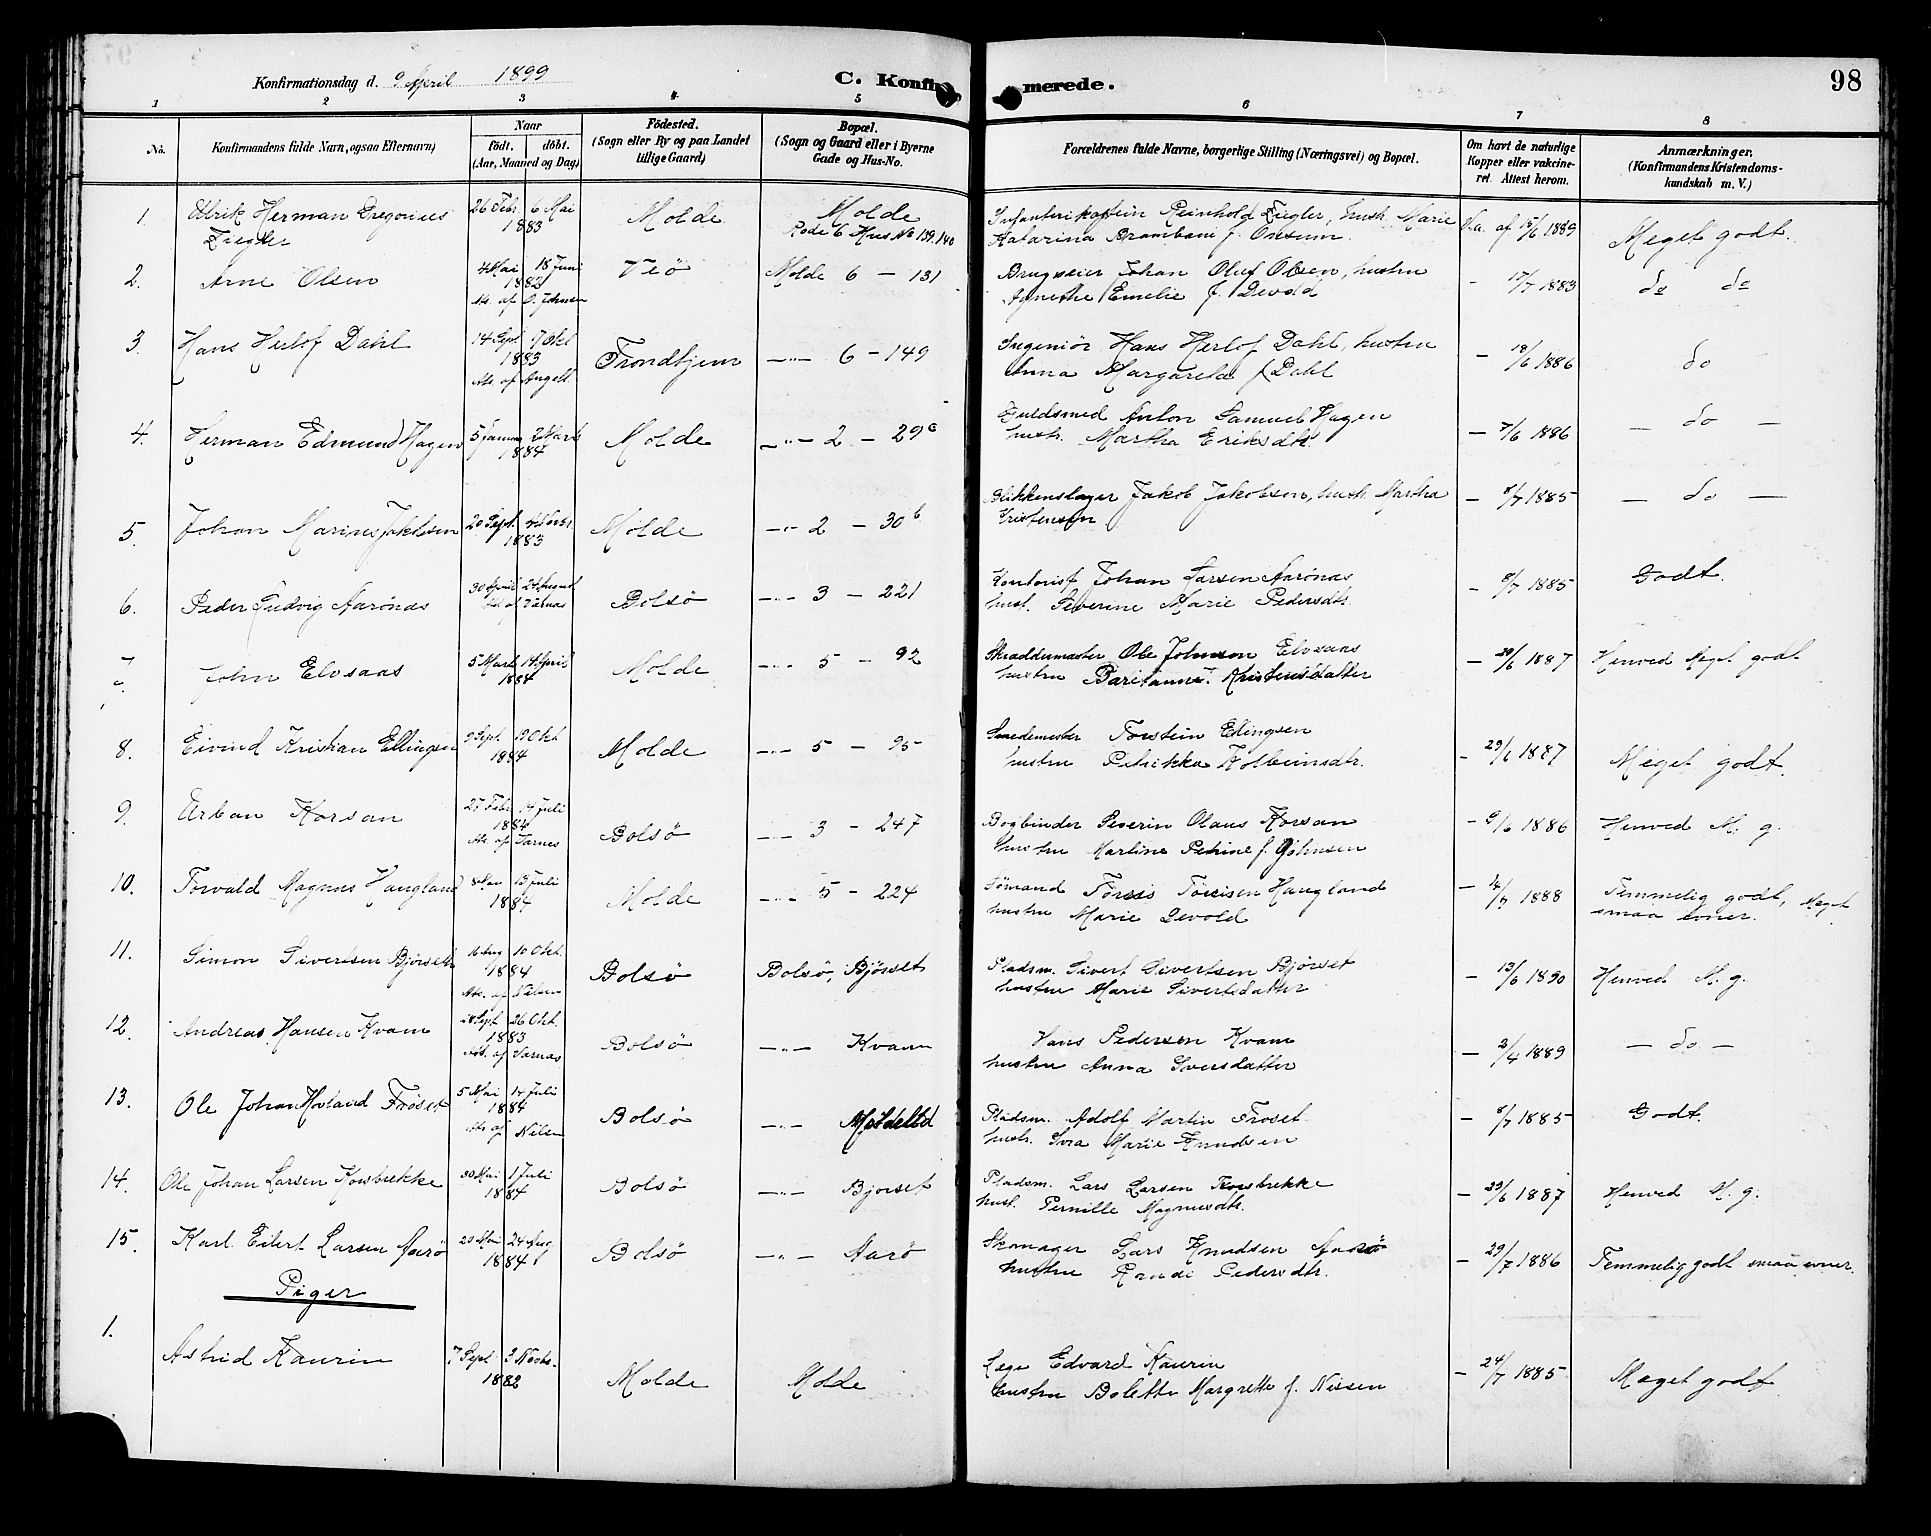 Konfirmationsdag d. 9 April 1899
C. Konfirmerede.
98
1 2 3 4 5 6 7 8
No.
Konfirmandens fulde Navn, ogsaa Efternavn)
Naar
födt. döbt.
(Aar, Maaned og Dag)
Födested.
(Sogn eller By og paa Landet tillige Gaard)
Bopæl.
(Sogn og Gaard eller i Byerne Gade og Hus-No.
Forældrenes fulde Navne, borgerlige Stilling (Næringsvei) og Bopæl.
Om havt de naturlige Kopper eller vakcineret. Attest herom.
Anmærkninger.
(Konfirmandens Kristendomskundskab m. V.)
1. Ulrik Herman Gregorius Ziegler 26 Febr. 6 Mai 1883 Molde Molde Rode 6 Hus No 139.140
Infanterikaptein Reinhold Ziegler, hustr. Marie Katarina Brambani f. Onsum. Va. af 15/6 1889 Meget godt.
2. Arne Olsen 4 Mai 18 Juni 1882 Att. af O. Johnsen Veö Molde 6 – 131
Brugseier Johan Oluf Olsen, hustru Agnethe Emelie f. Devold – 17/7 1883 do do
3. Hans Herlof Dahl 14 Sept. 17 Okt 1883 Att. af Angell Trondhjem –"– 6 – 149
Ingeniör Hans Herlof Dahl, hustru Anna Margareta f. Dahl – 18/6 1886 do
4. Herman Edmund Hagen 5 Januar 2 Marts 1884 Molde –"– 2 – 29c
Guldsmed Anton Samuel Hagen hustr. Martha Eriksdtr. – 7/6 1886 – do –
5. Johan Marines Jakobsen 20 Sept. 1883 Molde –"– 2 – 30b
Blikkenslager Jakob Jakobsen, hustr. Martha Kristensen – 8/7 1885 – do –
6. Peder Ludvig Aarönæs 30 April 24 August Att. af Varnæs Bolsö –"– 3 – 221
Kontorist Johan Larsen Aarönæs hust. Severine Marie Pedersdtr. – 8/7 1885 Godt.
7. John Elvsaas 5 Marts 14 April 1884 Molde –"– 5 – 92
Skræddermester Ole Johnsen Elvsaas hustru Beritanna Kristensdatter – 29/6 1887 Henved Meget godt
8. Eivind Kristian Ellingsen 9 Sept. 19 Okt 1884 Molde –"– 5 – 95
Smedemester Torstein Ellingsen hustru Petrikka Kolbeinsdtr. – 29/6 1887 Meget godt.
9. Urban Korsan 27 Febr. 14 Juli 1884 Att. af Varnes Bolsö –"– 3 – 247
Bogbinder Severin Olaus Korsan hustru Martine Petrine f. Johnsen – 9/6 1886 Henved M. g.
10. Torvald Magnus Haugland 8 Mai 13 Juli 1884 Molde –"– 5 – 224
Sömand Törris Törrisen Haugland hustru Marie Devold – /7 1888 Temmelig godt, Meget smaa evner.
11. Simon Sivertsen Bjørset 16 Aug 10 Okt. 1884 Att. af Nilsen Bolsö Bolsö, Bjørset
Pladsm. Sivert Sivertsen Bjørset hustru Marie Sivertsdatter – 13/6 1890 Henved M. g.
12. Andreas Hansen Kvam 28 Sept 26 Okt. 1883 Att. af Varnæs Bolsö –"– Kvam
Hans Pedersen Kvam hustru Anna Iversdatter – 2/4 1889 – do –
13. Ole Johan Hovland Fröset 5 Mai 14 Juli 1884 Att. af Nilsen Bolsö –"– Moldelid
Pladsm. Adolf Martin Fröset hustr. Sira Marie Knudsen – 8/7 1885 Godt.
14. Ole Johan Larsen Korsbrekke 30 Mai 1 Juli 1884 Bolsö –"– Bjørset
Pladsm. Lars Larsen Korsbrekke hust. Pernille Magnusdtr. – 29/6 1887 Henved M. g.
15. Karl Eilert Larsen Aarö 20 Mai 24 Aug 1884 Bolsö –"– Aarö
Skomager Lars Knudsen Aarö hustru Randi Pedersdtr. – 29/7 1886 Temmelig godt smaa evner.
Piger
1. Astrid Kaurin 7 Sept 3 Novbr. 1882 Molde Molde
Læge Edvard Kaurin hustru Bolette Margrette f. Nissen – 24/7 1885 Meget godt